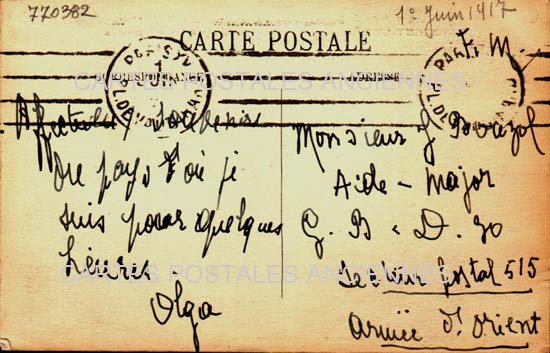 770382
1er Juin 1917
CARTE POSTALE
F. M.
CORRESPONDANCE
CARTES POSTALES ANCIENNES
Affectueux souvenirs
du pays où je
suis pour quelques
heures
Olga
Monsieur J
Aide-Major
G. B. D. 30
Secteur postal 515
Armée d'Orient
CARTES POSTALES ANCIENNES